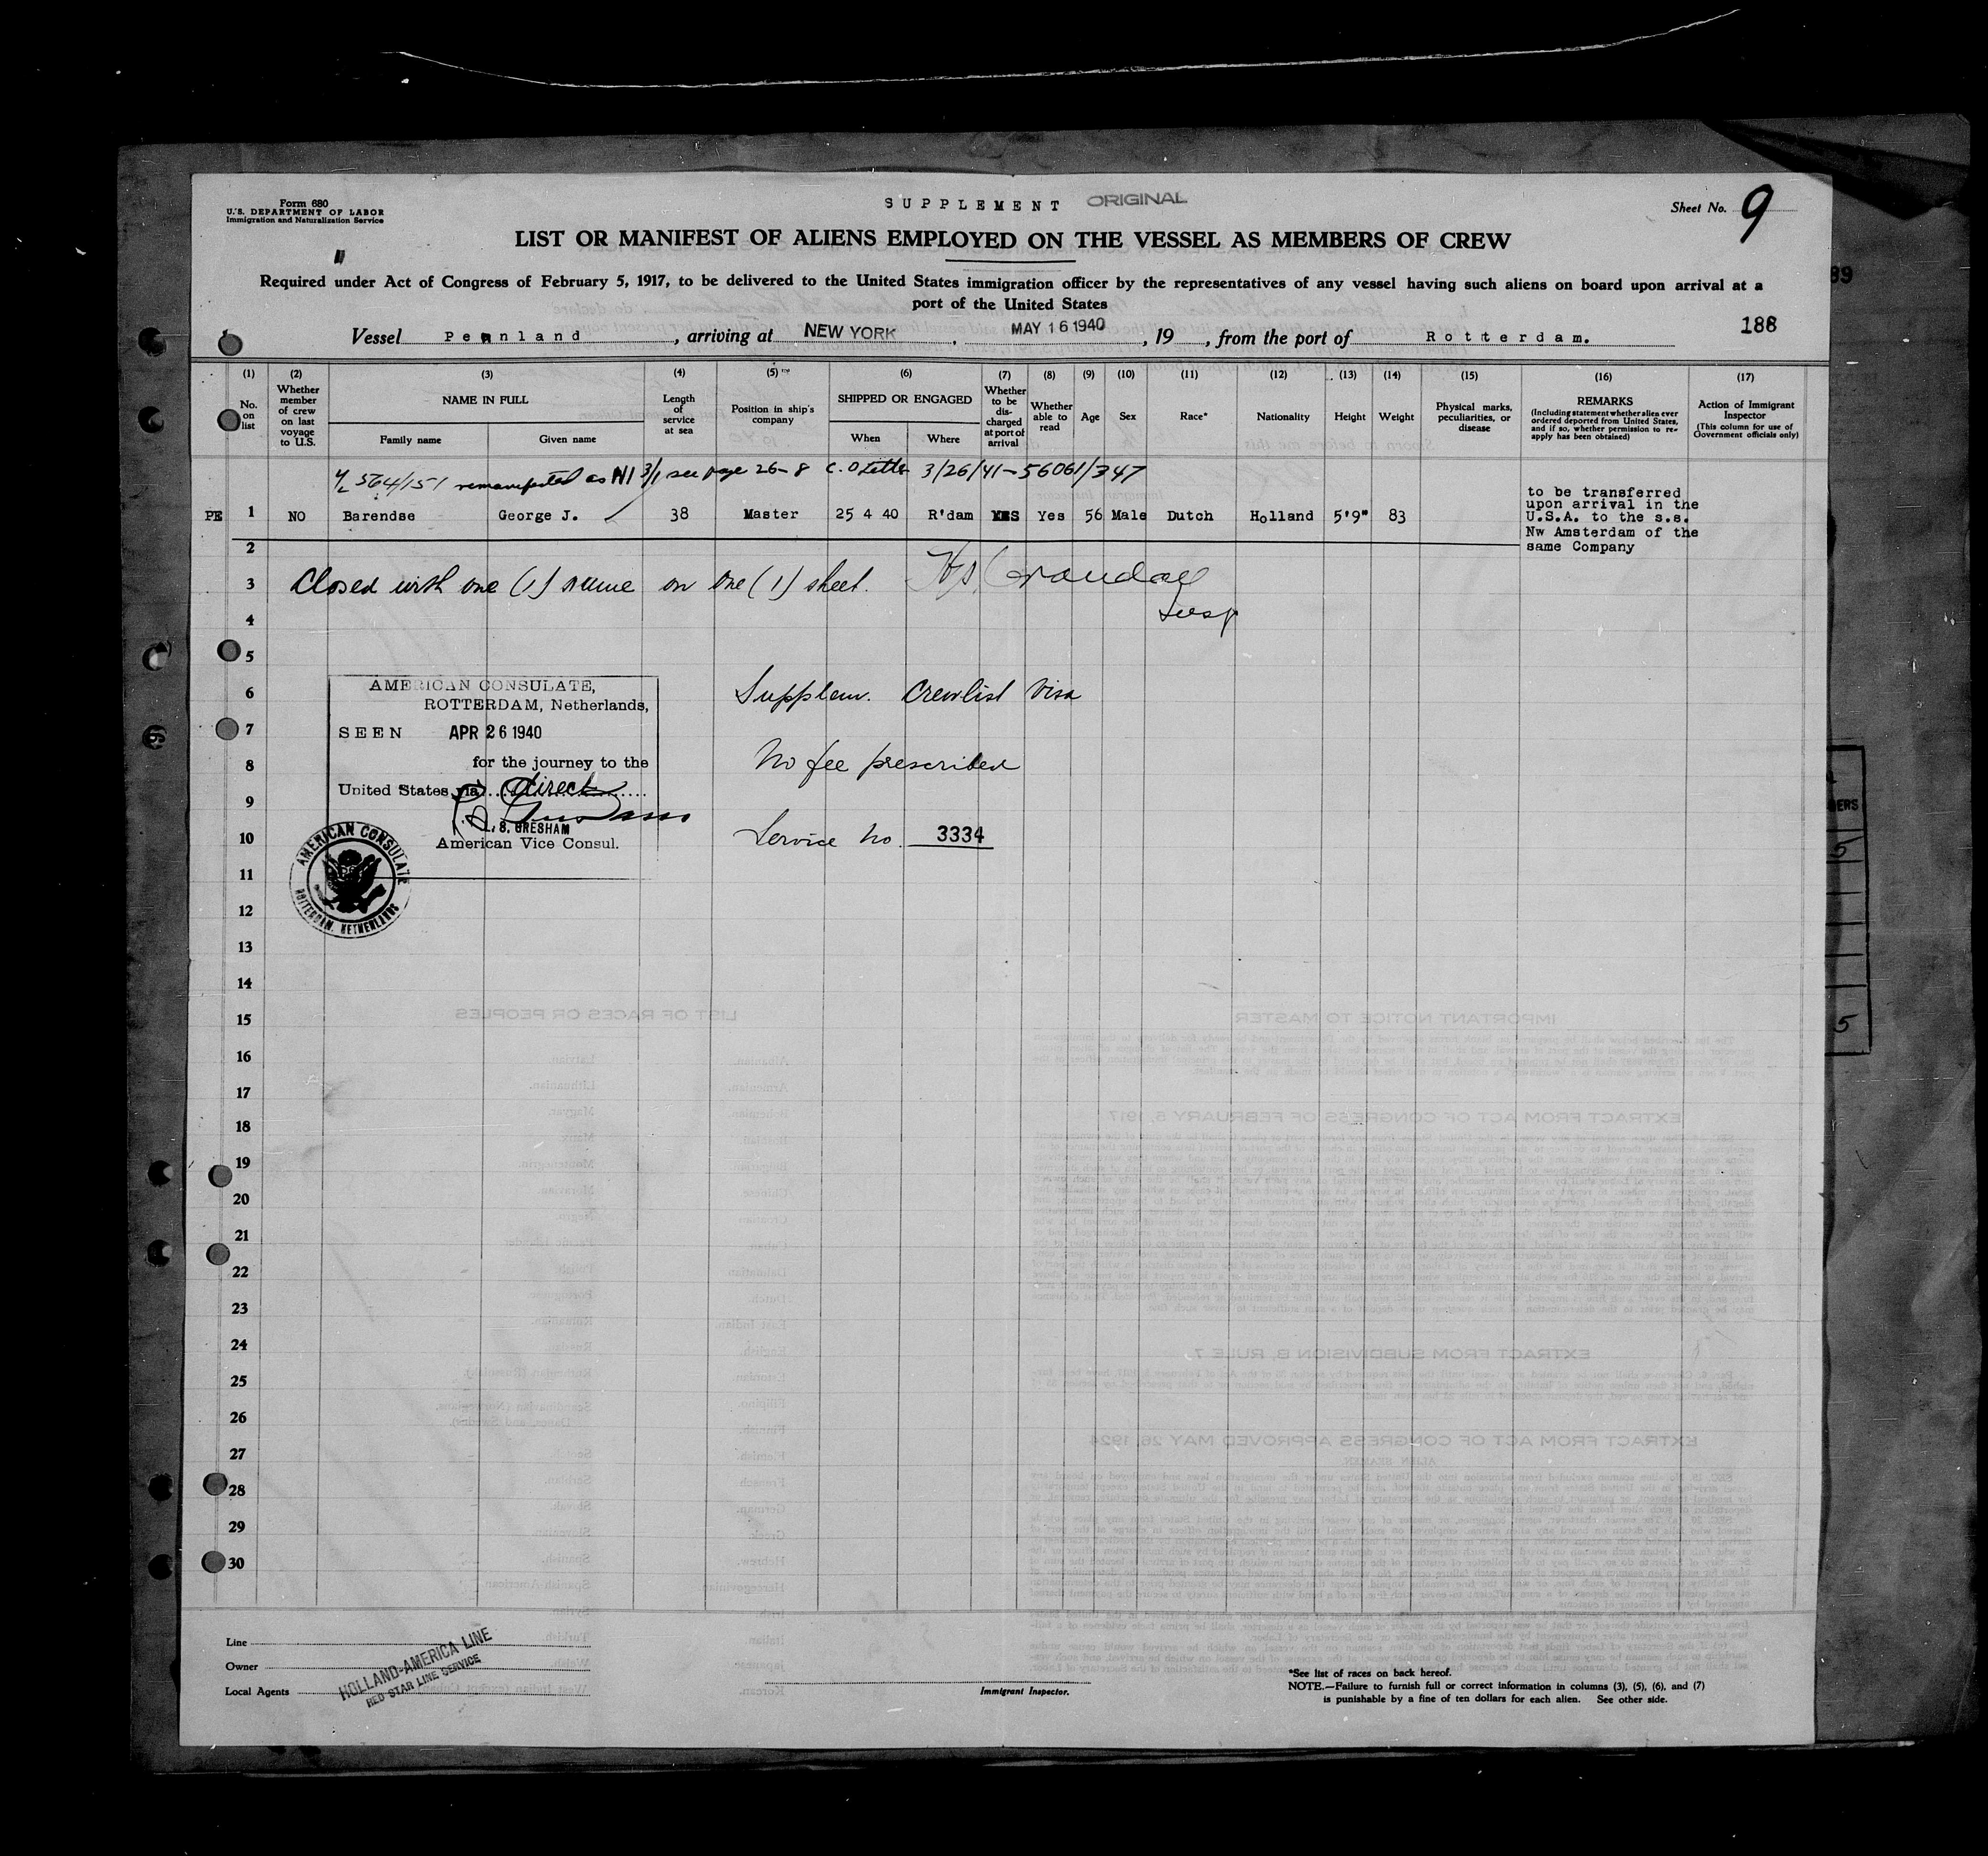 Form 680
U.S. DEPARTMENT OF LABOR
Immigration and Naturalization Service
SUPPLEMENT ORIGINAL
Sheet No. 9
LIST OR MANIFEST OF ALIENS EMPLOYED ON THE VESSEL AS MEMBERS OF CREW
Required under Act of Congress of February 5, 1917, to be delivered to the United States immigration officer by the representatives of any vessel having such aliens on board upon arrival at a
port of the United States
89
188
Vessel Pennland, arriving at NEW YORK, MAY 16 1940, 19 , from the port of Rotterdam.
(1) (2) (3) (4) (5) (6) (7) (8) (9) (10) (11) (12) (13) (14) (15) (16) (17)
No. on list
Whether member of crew on last voyage to U.S.
NAME IN FULL
Family name
Given name
Length of service at sea
Position in ship's company
SHIPPED OR ENGAGED
When
Where
Whether to be discharged at port of arrival
Whether able to read
Age
Sex
Race*
Nationality
Height
Weight
Physical marks, peculiarities, or disease
REMARKS
(Including statement whether alien ever ordered deported from United States, and if so, whether permission to reapply has been obtained)
Action of Immigrant Inspector
(This column for use of Government officials only)
564/151 remanifested as N1 3/1 see page 26-8 C.O letter 3/26/41-56061/347
PE 1 NO Barendse George J. 38 Master 25 4 40 R'dam YES Yes 56 Male Dutch Holland 5'9" 83
to be transferred
upon arrival in the
U.S.A. to the s.s.
Nw Amsterdam of the
same Company
2
3 Closed with one (1) name on one (1) sheet. Crandall
4 Insp
5
6 Supplem. Crewlist Visa
7
8 No fee prescribed
9
10 Service No. 3334
AMERICAN CONSULATE,
ROTTERDAM, Netherlands,
SEEN APR 26 1940
for the journey to the
United States via direct
L. S. GRESHAM
American Vice Consul.
AMERICAN CONSULATE
ROTTERDAM, NETHERLANDS
11
12
13
14
15
16
17
18
19
20
21
22
23
24
25
26
27
28
29
30
5
5
Line
Owner
Local Agents
HOLLAND-AMERICA LINE
RED STAR LINE SERVICE
Immigrant Inspector.
*See list of races on back hereof.
NOTE.—Failure to furnish full or correct information in columns (3), (5), (6), and (7)
is punishable by a fine of ten dollars for each alien. See other side.